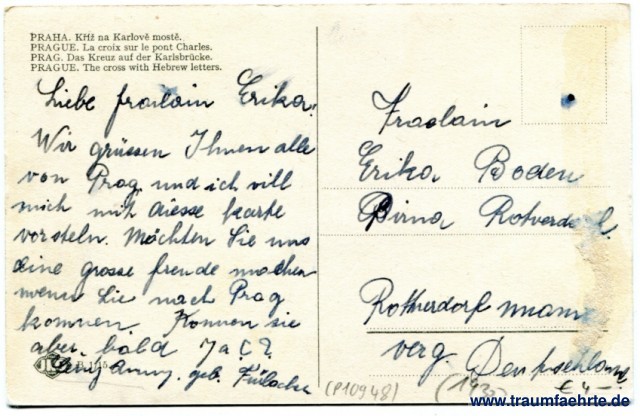 PRAHA. Kříž na Karlově mostě.
PRAGUE. La croix sur le pont Charles.
PRAG. Das Kreuz auf der Karlsbrücke.
PRAGUE. The cross with Hebrew letters.
Liebe frailain Erika!
Wir grüssen Ihnen alle
von Prag und ich vill
mich mit diesse karte
vorsteln. Möchten Sie uns
eine grosse freude machen
wenen Sie nach Prag
kommen. Konnen sie
aber bald
geb.
Fraolain
Erika Boden
Pirna
Rottwerdorf
verg. Deutschland
(P10948)
€ 4,-
www.traumfaehrte.de